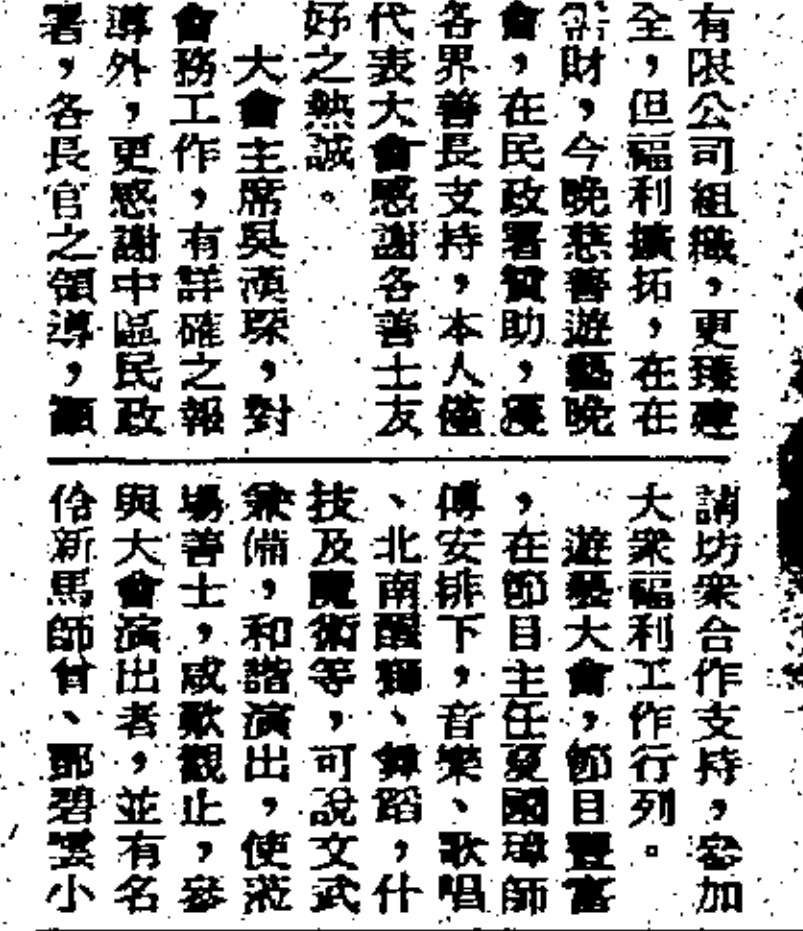 有限公司組織，更臻建
全，但福利擴拓，在在
需財，今晚慈善遊藝晚
會，在民政署贊助，獲
各界善長支持，本人僅
代表大會感謝各善士友
好之熱誠。
大會主席吳湞琛，對
會務工作，有詳確之報
導外，更感謝中區民政
署，各長官之領導，顧
請坊衆合作支持，參加
大衆福利工作行列。
遊藝大會，節目豐富
，在節目主任夏國璋師
傅安排下，音樂、歌唱
、北南醒獅、舞蹈，什
技及魔術等，可說文武
兼備，和諧演出，使蒞
場善士，咸歎觀止，參
與大會演出者，並有名
伶新馬師曾、鄧碧雲小